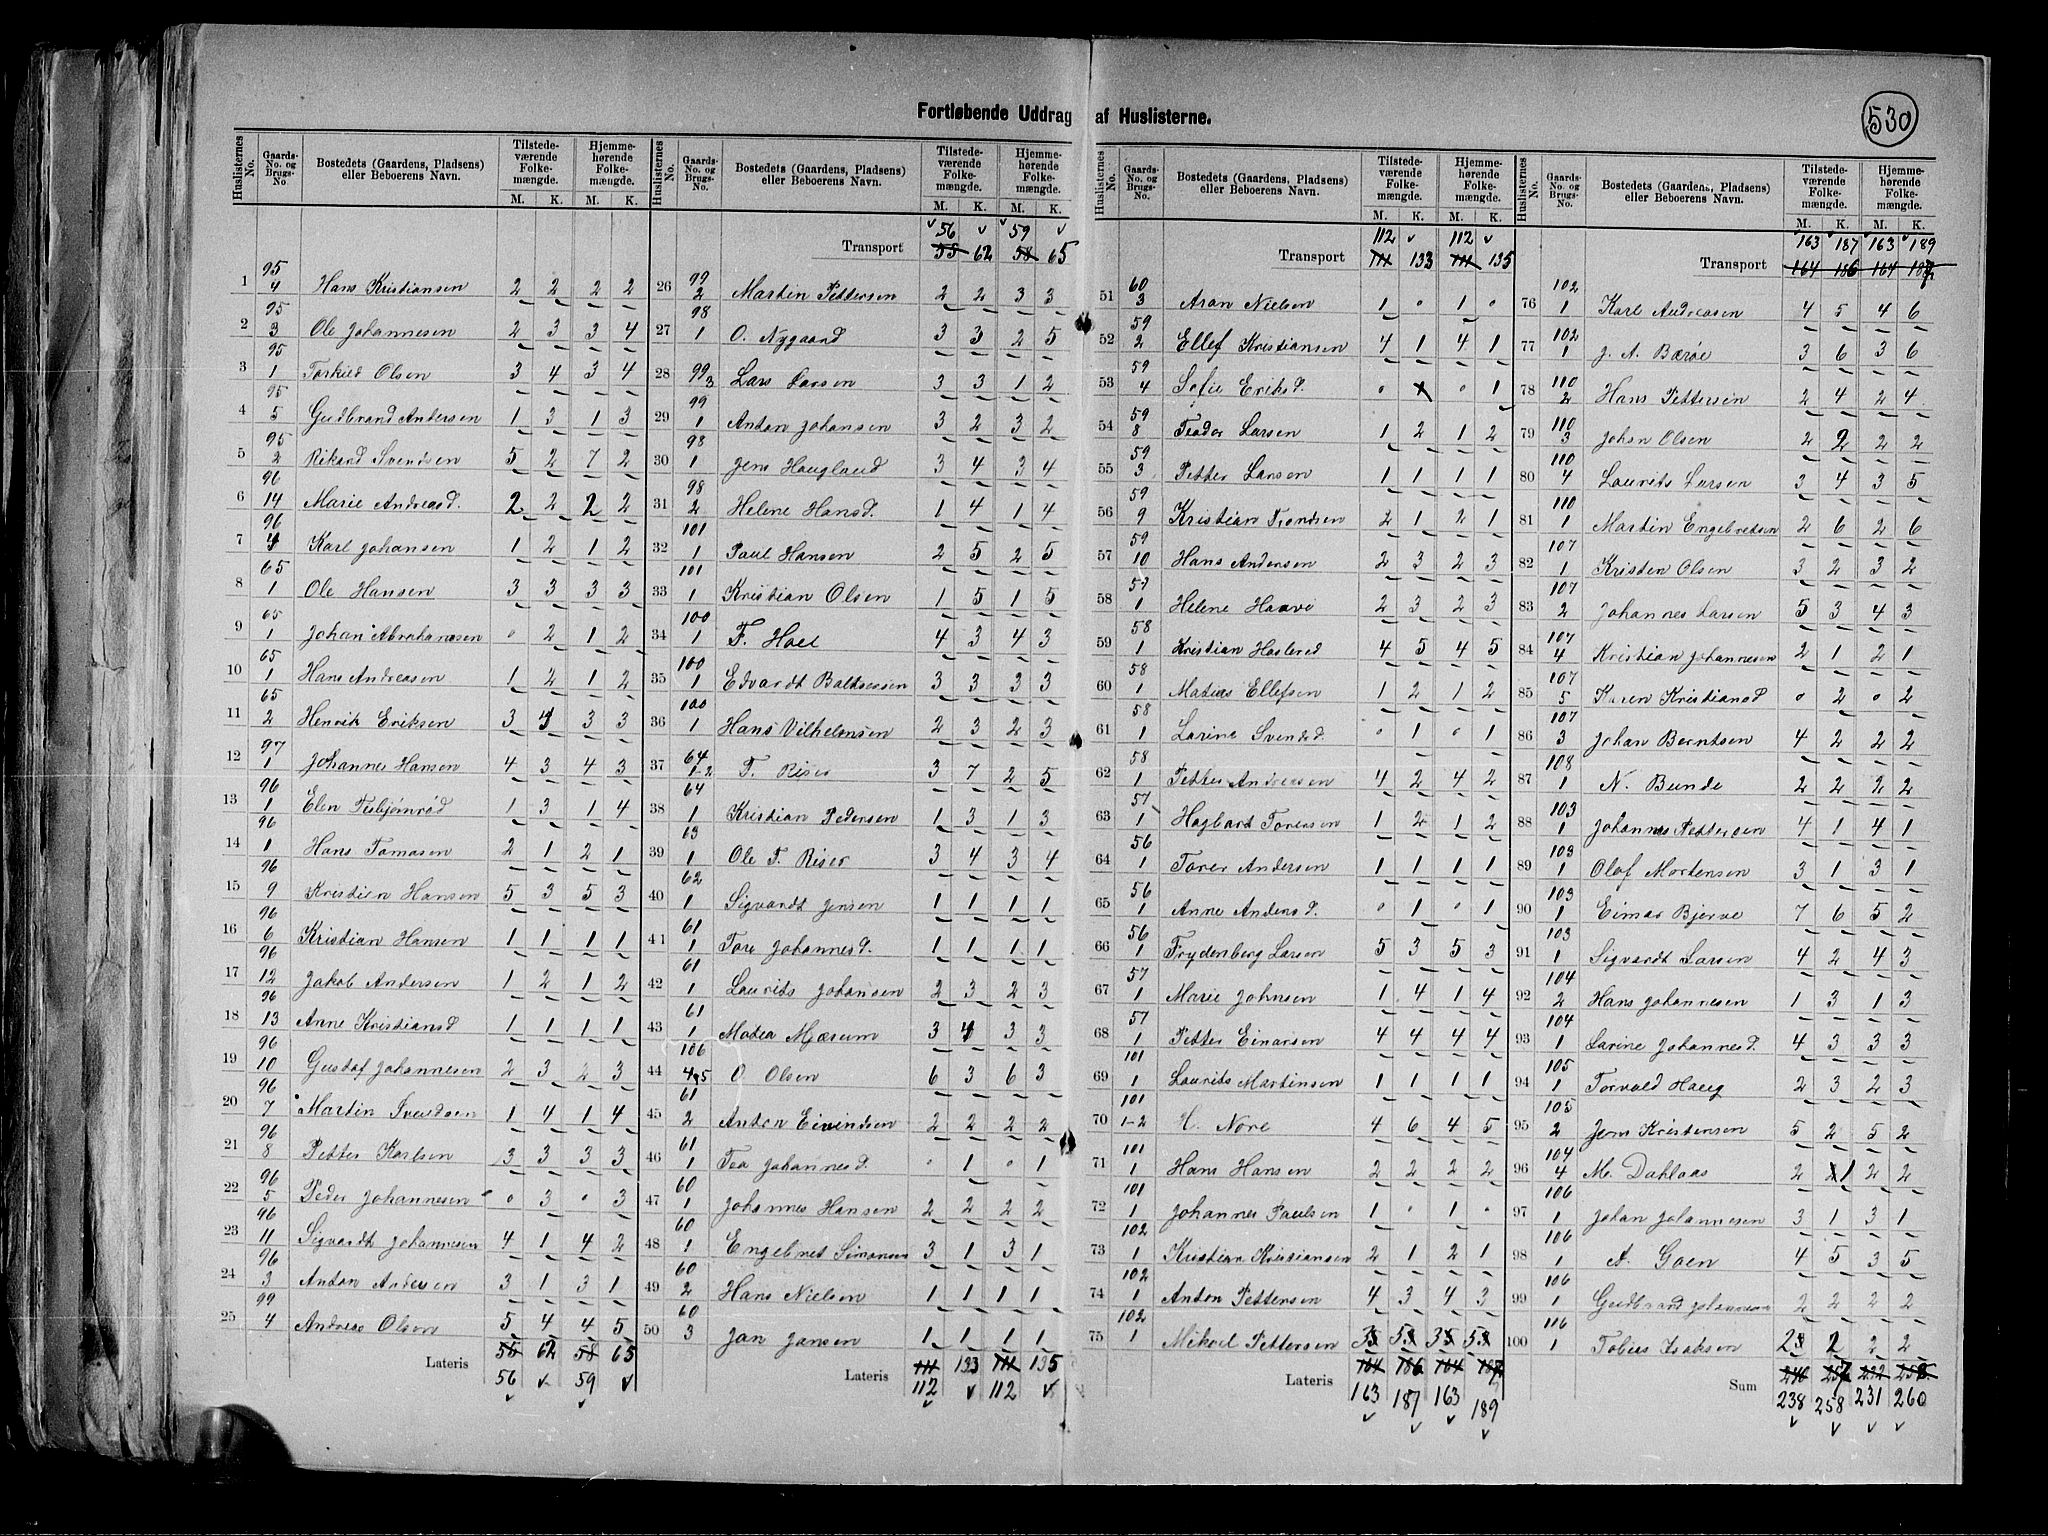 Fortløbende Uddrag af Huslisterne.
530
Huslisternes No. Gaards-No. og Brugs-No. Bostedets (Gaardens, Pladsens) eller Beboerens Navn. Tilstedeværende Folkemængde. M. K. Hjemmehørende Folkemængde. M. K.
1 95/4 Hans Kristiansen 2 2 2 2
2 95/3 Ole Johannesen 2 3 3 4
3 95/1 Torkild Olsen 3 4 3 4
4 95/5 Gudbrand Andersen 1 3 1 3
5 95/2 Rikard Svendsen 5 2 7 2
6 96/14 Marie Andreasd. 2 2 2 2
7 96/4 Karl Johansen 1 2 1 2
8 65/1 Ole Hansen 3 3 3 3
9 65/1 Johan Abrahamsen 0 2 1 2
10 65/1 Hans Andreasen 1 2 1 2
11 65/2 Henrik Eriksen 3 3 3
12 97/1 Johannes Hansen 4 3 4 3
13 96/1 Elen Tesbjørnrød 1 3 1 4
14 96/1 Hans Tomasen 2 1 2 1
15 96/9 Kristian Hansen 5 3 5 3
16 96/6 Kristian Hansen 1 1 1 1
17 96/12 Jakob Andersen 1 2 1 2
18 96/13 Anne Kristiansd 1 1 1 1
19 96/10 Gustaf Johannesen 2 3 2 3
20 96/7 Martin Svendsen 1 4 1 4
21 96/8 Petter Karlsen 3 3 3 3
22 96/5 Peder Johannesen 0 3 0 3
23 96/11 Sigvardt Johannesen 4 1 4 2
24 96/3 Anton Andersen 3 1 3 1
25 99/4 Andreas Olsen 5 4 4 5
Lateris 55 62 58 65
56 59
Huslisternes No. Gaards-No. og Brugs-No. Bostedets (Gaardens, Pladsens) eller Beboerens Navn. Tilstedeværende Folkemængde. M. K. Hjemmehørende Folkemængde. M. K.
56 59
Transport 55 62 58 65
26 99/2 Martin Pettersen 2 2 3 3
27 98/1 O. Nygaard 3 3 2 5
28 99/3 Lars Larsen 3 3 1 2
29 99/1 Anton Johansen 3 2 3 2
30 98/1 Jens Haugland 3 4 3 4
31 98/2 Helene Hansd. 1 4 1 4
32 101/1 Paul Hansen 2 5 2 5
33 101/1 Kristian Olsen 1 5 1 5
34 100/1 F. Hoel 4 3 4 3
35 100/1 Edvardt Baltsersen 3 3 3 3
36 100/1 Hans Vilhelmsen 2 3 2 3
37 64/1-2 T. Riser 3 7 2 5
38 64/1 Kristian Pedersen 1 3 1 3
39 63/1 Ole T. Riser 3 4 3 4
40 62/1 Sigvardt Jensen 1 1 1 1
41 61/1 Tore Johannesd. 1 1 1 1
42 61/1 Laurits Johansen 2 3 2 3
43 61/1 Matea Mærum 3 3 3
44 106/4,5 O. Olsen 6 3 6 3
45 61/2 Anton Eivindsen 2 2 2 2
46 61/1 Tea Johannesd. 0 1 0 1
47 60/1 Johannes Hansen 2 2 2 2
48 60/1 Engebret Simonsen 3 1 3 1
49 60/2 Hans Nielsen 1 1 1 1
50 60/3 Jan Jansen 1 1 1 1
Lateris 111 133 111 135
112 112
Huslisternes No. Gaards-No. og Brugs-No. Bostedets (Gaardens, Pladsens) eller Beboerens Navn. Tilstedeværende Folkemængde. M. K. Hjemmehørende Folkemængde. M. K.
112 112
Transport 111 133 111 135
51 60/3 Aron Nielsen 1 0 1 0
52 59/2 Ellef Kristiansen 4 1 4 1
53 59/4 Sofie Eriksd. 0 1 0 1
54 59/8 Teodor Larsen 1 2 1 2
55 59/3 Petter Larsen 1 1 1 1
56 59/9 Kristian Trondsen 2 1 2 1
57 59/10 Hans Andersen 2 3 2 3
58 57/1 Helene Haave 2 3 2 3
59 58/1 Kristian Haslerud 4 5 4 5
60 58/1 Matias Ellefsen 1 2 1 2
61 58/1 Larine Svendsd. 0 1 0 1
62 58/1 Petter Andersen 4 2 4 2
63 57/1 Hagbart Torersen 1 2 1 2
64 56/1 Torer Andersen 1 1 1 1
65 56/1 Anne Andersd. 0 1 0 1
66 56/1 Frydenberg Larsen 5 3 5 3
67 57/1 Marie Johnsen 1 4 1 4
68 57/1 Petter Einarsen 4 4 4 4
69 101/1 Laurits Martinsen 1 1 1 1
70 101/1-2 H. Nore 4 6 4 5
71 101/1 Hans Hansen 2 2 2 2
72 101/1 Johannes Paulsen 1 0 1 0
73 102/1 Kristian Kristiansen 2 1 2 1
74 102/1 Anton Pettersen 4 3 4 3
75 102/1 Mikael Pettersen
Lateris 164 186 164 187
163 187 163 189
Huslisternes No. Gaards-No. og Brugs-No. Bostedets (Gaardens, Pladsens) eller Beboerens Navn. Tilstedeværende Folkemængde. M. K. Hjemmehørende Folkemængde. M. K.
163 187 163 189
Transport 164 186 164 187
76 102/1 Karl Andreasen 4 5 4 6
77 102/1 J. A. Barøe 3 6 3 6
78 110/2 Hans Pettersen 2 4 2 4
79 110/3 Johan Olsen 2 2 2 2
80 110/4 Laurits Larsen 3 4 3 5
81 110/1 Martin Engebretsen 2 6 2 6
82 107/1 Kristen Olsen 3 2 3 2
83 107/2 Johannes Larsen 5 3 4 3
84 107/4 Kristian Johannesen 2 1 2 1
85 107/5 Karen Kristiansd 0 2 0 2
86 107/3 Johan Berntsen 4 2 2 2
87 108/1 N. Bunde 2 2 2 2
88 103/1 Johannes Pettersen 4 1 4 1
89 103/1 Olof Mortensen 3 1 3 1
90 103/1 Einar Bjerve 7 6 5 2
91 103/1 Sigvardt Larsen 4 2 4 3
92 104/2 Hans Johannesen 1 3 1 3
93 104/1 Larine Johannesd. 4 3 3 3
94 105/1 Torvald Haug 2 3 2 3
95 105/2 Jens Kristensen 5 2 5 2
96 104/4 M. Dahlaas 2 1 2 2
97 106/1 Johan Johannesen 3 1 3 1
98 106/1 A. Goen 4 5 3 5
99 106/1 Gudbrand Johannesen 2 2 2 2
100 116/1 Tobias Isaksen 2 2 2 2
Sum
238 258 231 260